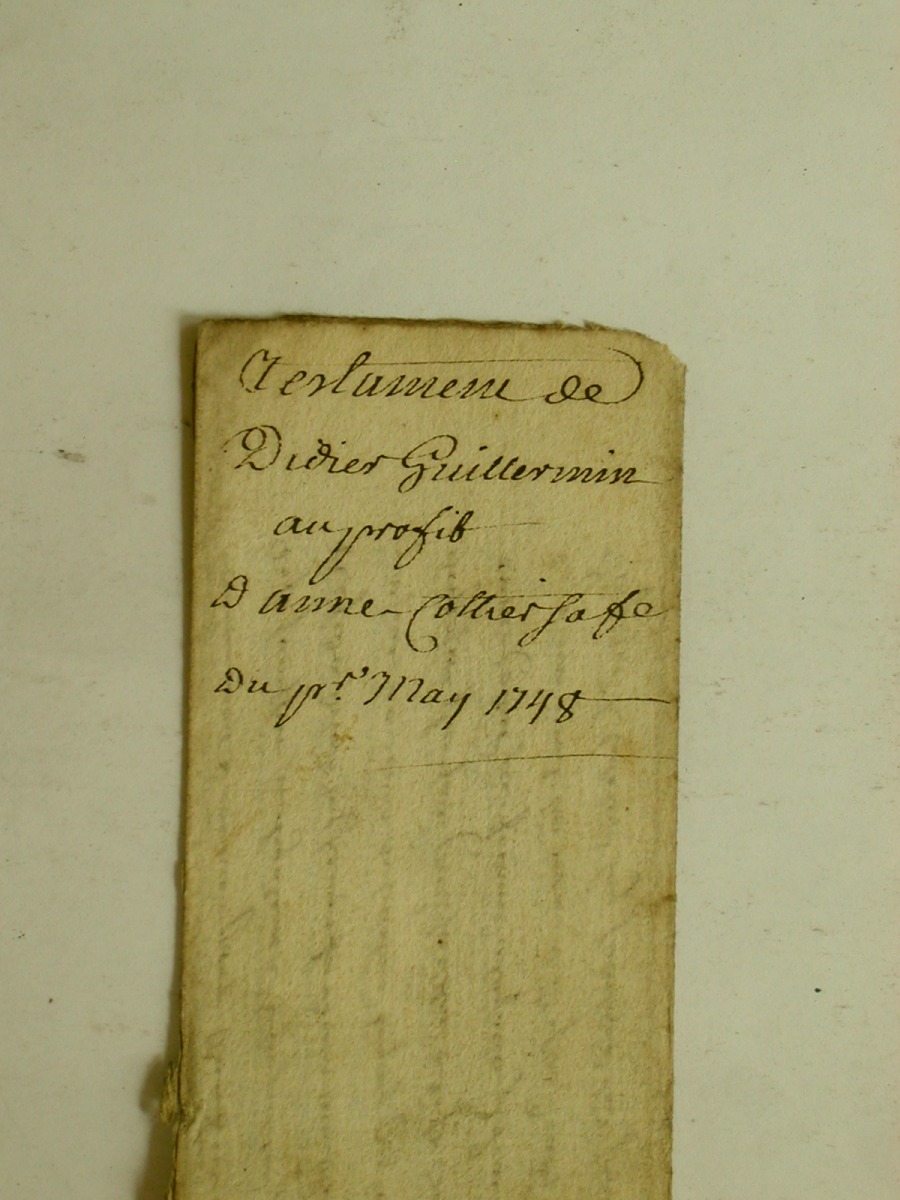 Testament de
Didier Guillermin
au profit
D anne Collier sa fe
Du pr. May 1748